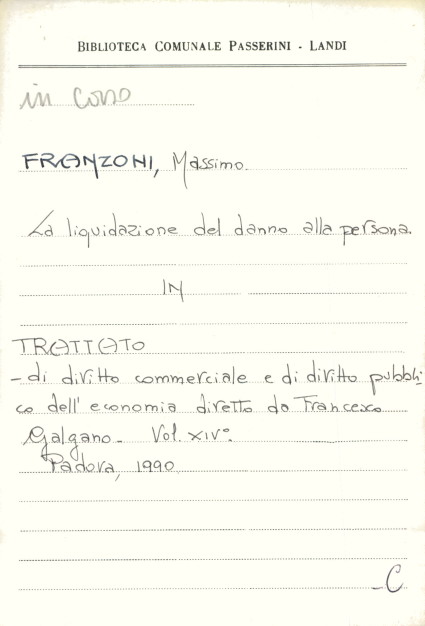 BIBLIOTECA COMUNALE PASSERINI - LANDI
in corso
FRANZONI, Massimo.
La liquidazione del danno alla persona.
IN
TRATTATO
- di diritto commerciale e di diritto pubbli-
co dell'economia diretto da Francesco
Galgano - Vol. XIV°.
Padova, 1990
-C